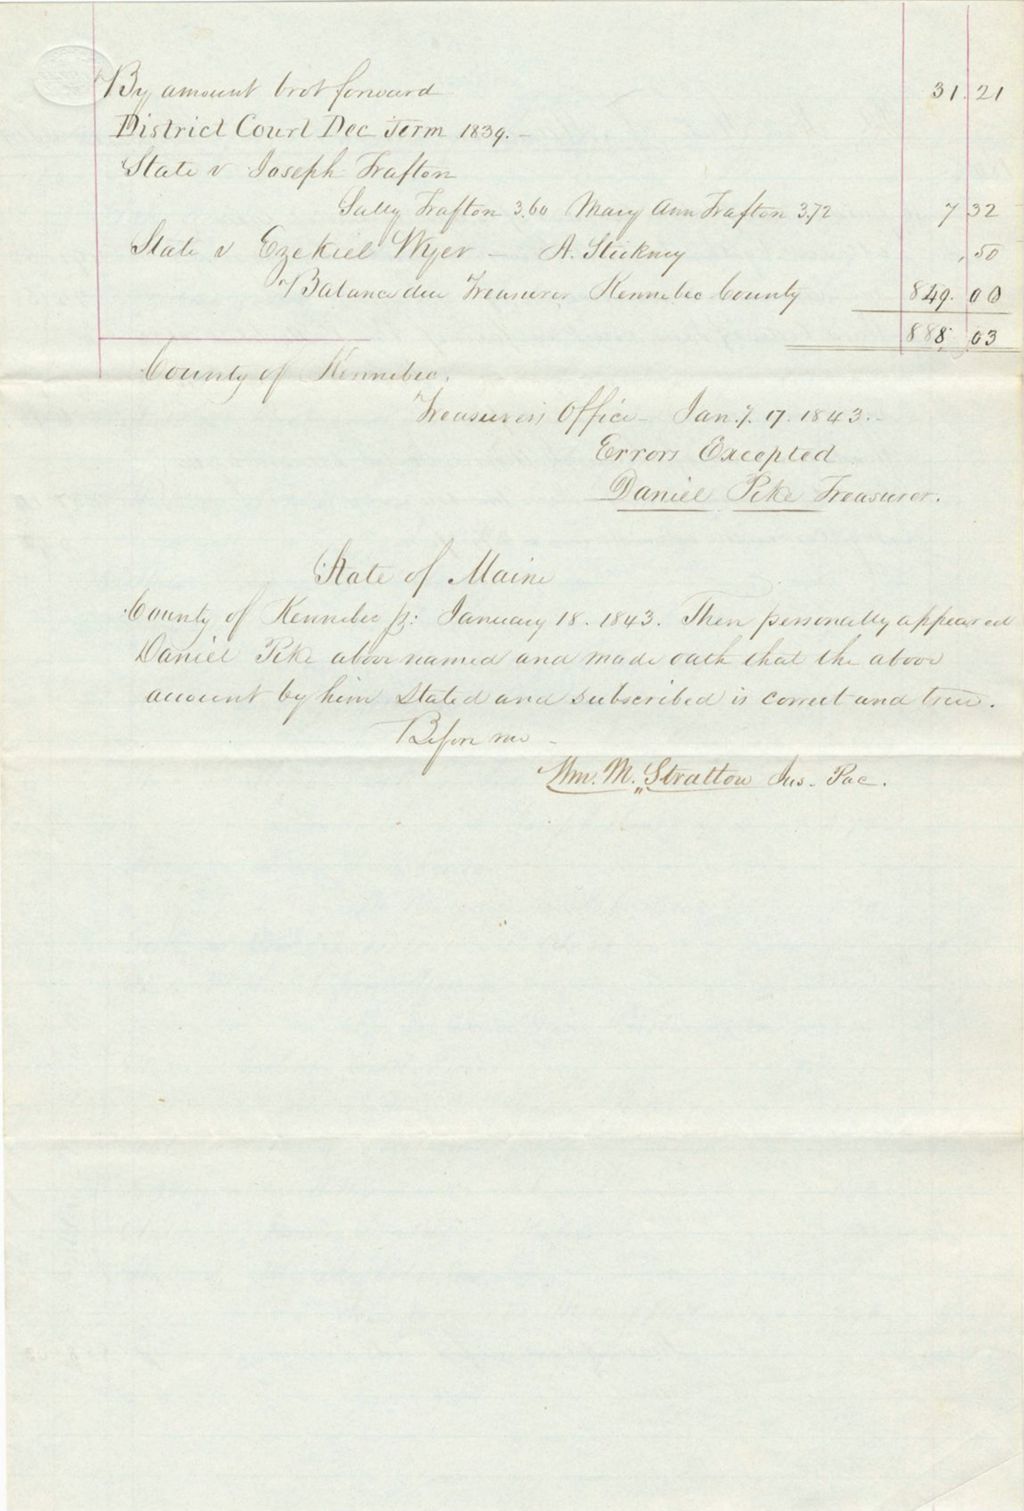 By amount brot forward 31.21
District Court Dec Term 1839.-
State v Joseph Trafton
Sally Trafton 3.60 Mary Ann Trafton 3.72 7 32
State v Ezekiel Wyer - A. Stickney .50
Balance due Treasurer Kennebec County 849.00
888.03
County of Kennebec.
Treasurer's Office - Jany. 17. 1843.-
Errors Excepted
Daniel Pike Treasurer.
State of Maine
County of Kennebec ss: January 18. 1843. Then personally appeared
Daniel Pike above named and made oath that the above
account by him Stated and subscribed is correct and true.
Before me -
Wm. M. Stratton Jus. Pac.